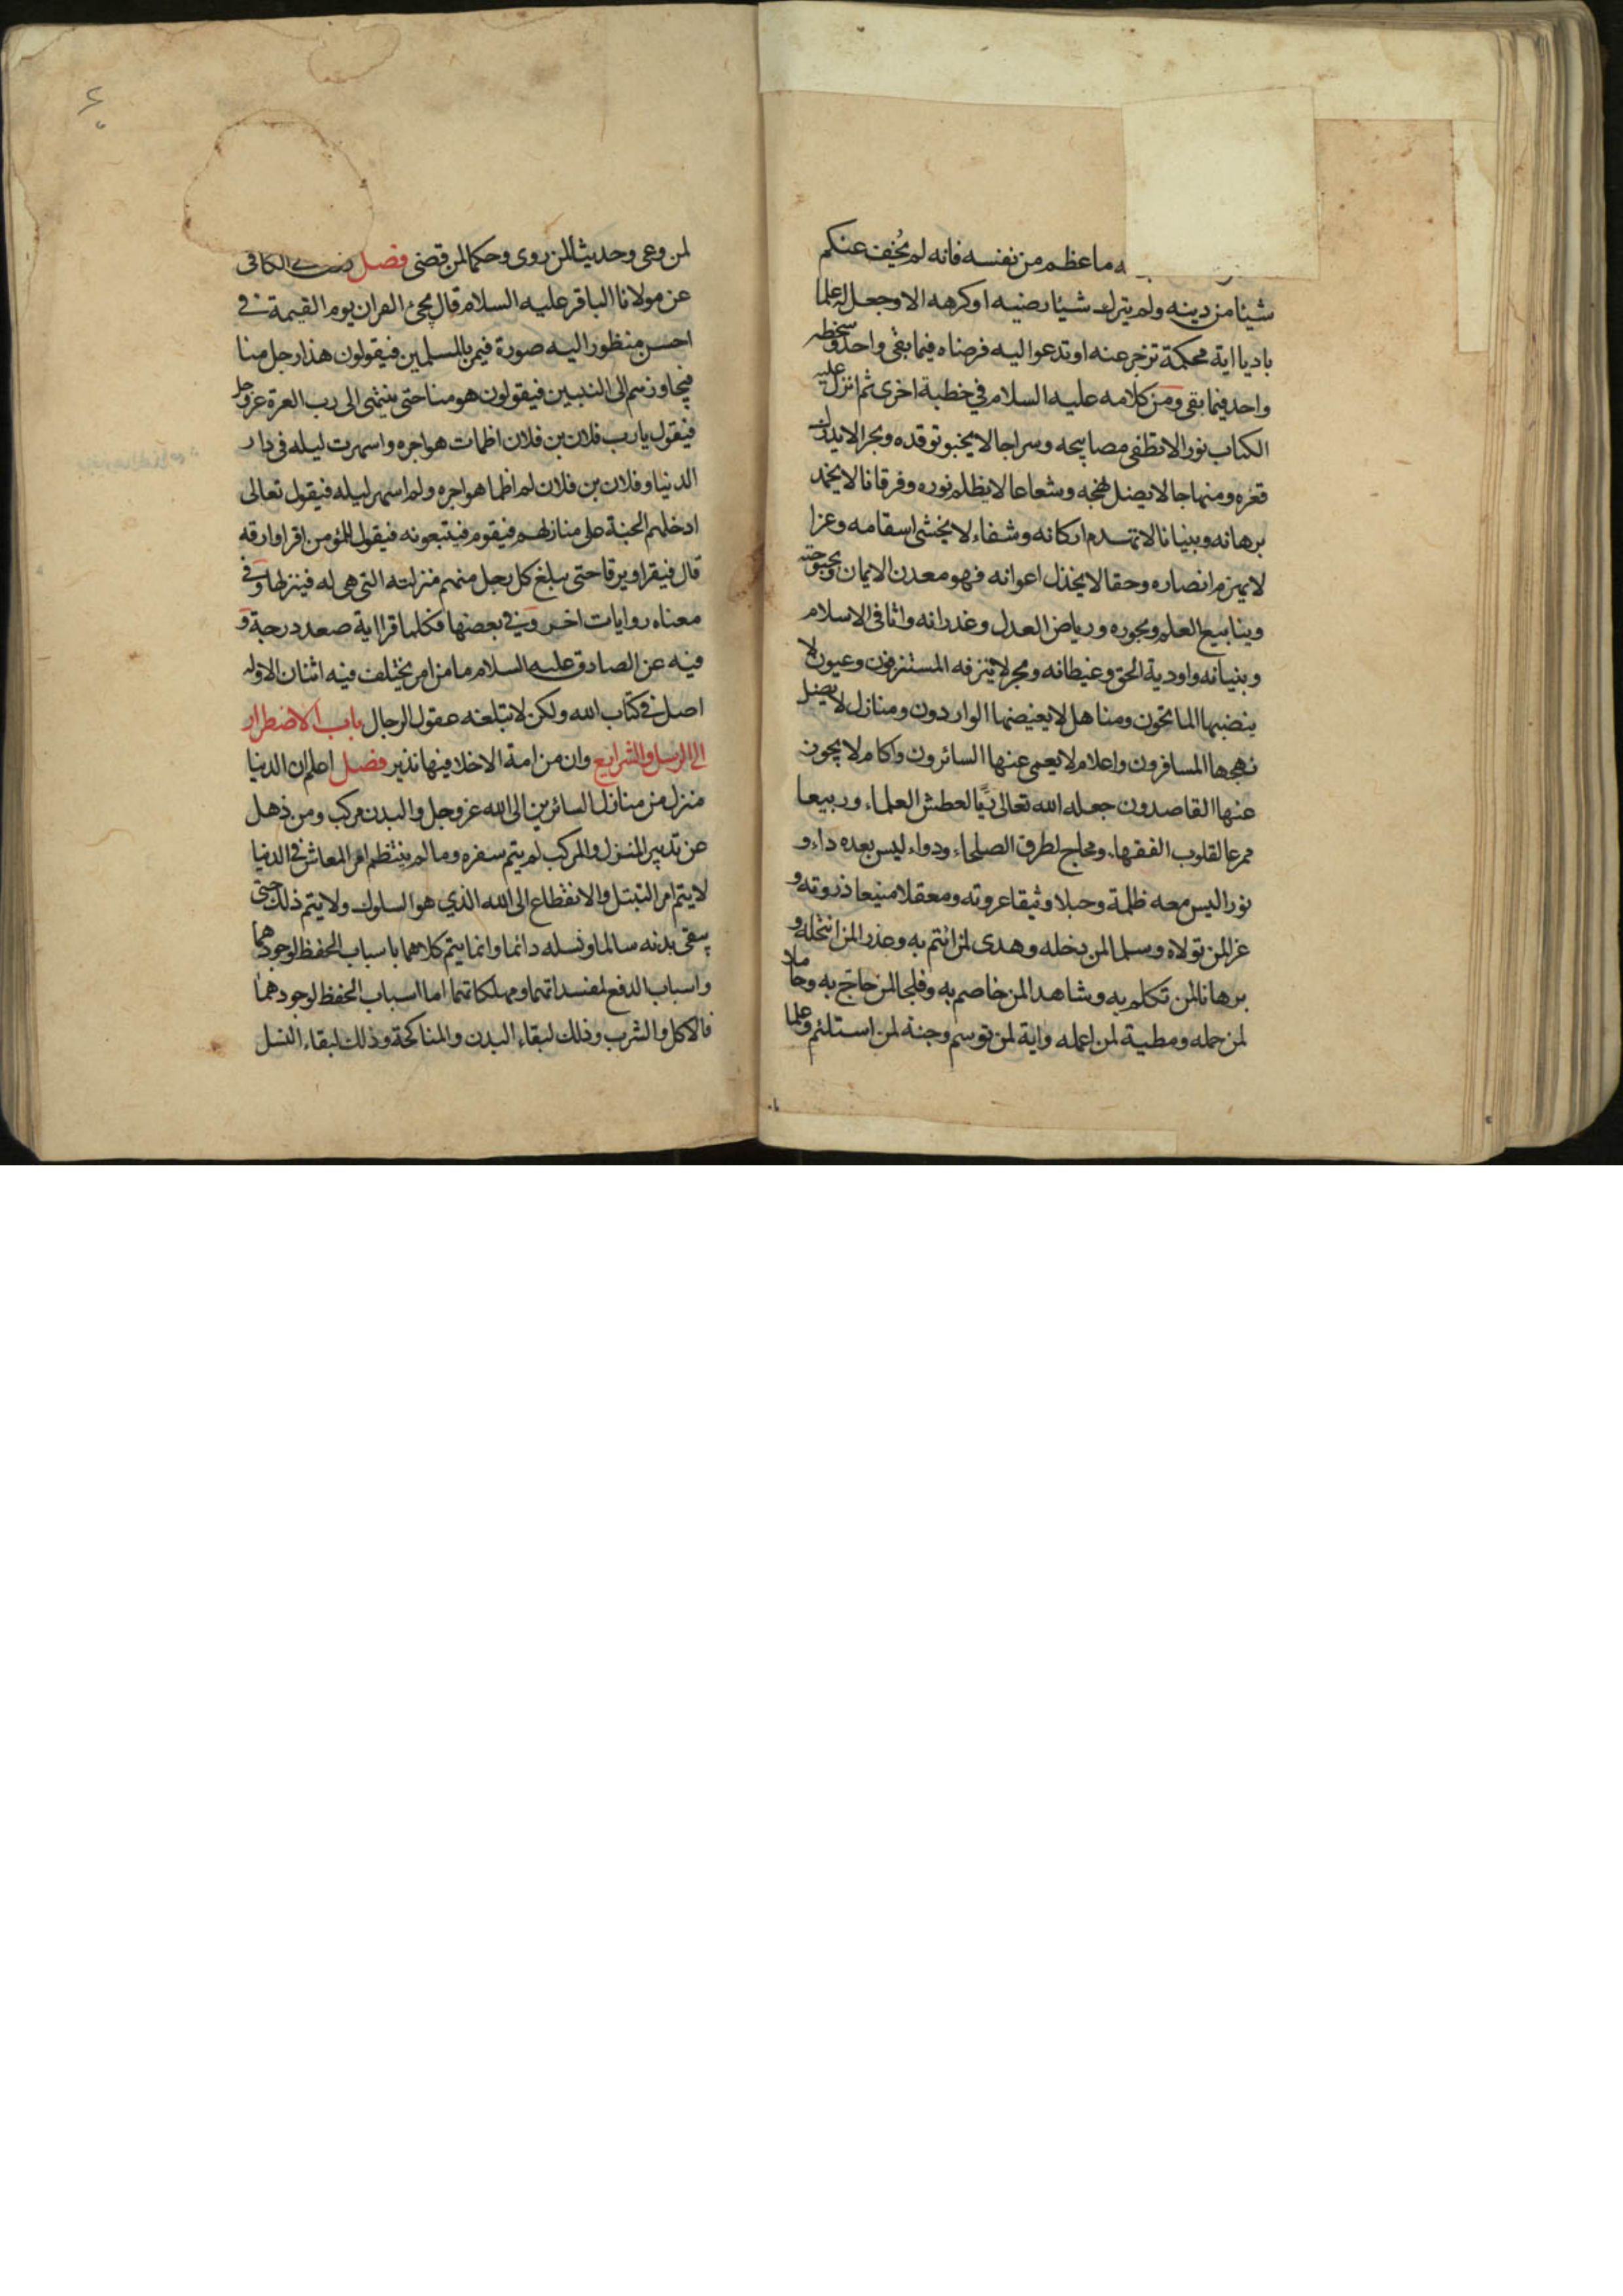 ه ما عظم من نفسه فانه لم يُخف عنكم
شيئا من دينه ولم يترك شيئا رضيه او كرهه الا وجعل له علما
باديا اية محكمة تزجر عنه او تدعوا اليه فرضاه فيما بقى واحد وسخطه
واحد فيما بقى ومن كلامه عليه السلام في خطبة اخرى ثم انزل عليه
الكتاب نورا لا تطفى مصابيحه وسراجا لا يخبو توقده وبحرا لا يدرك
قعره ومنهاجا لا يضل نهجه وشعاعا لا يظلم نوره وفرقانا لا يخمد
برهانه وبنيانا لا تهدم اركانه وشفاء لا يخشى اسقامه وعزا
لا يهزم انصاره وحقا لا يخذل اعوانه فهو معدن الايمان وبحبوحته
وينابيع العلم وبحوره ورياض العدل وغدرانه واثافى الاسلام
وبنيانه واودية الحق وغيطانه وبحر لا ينزفه المستنزفون وعيون لا
ينضبها الماتحون ومناهل لا يغيضها الواردون ومنازل لا يضل
نهجها المسافرون واعلام لا يعمى عنها السائرون واكام لا يجوز
عنها القاصدون جعله الله تعالى ريّا لعطش العلماء وربيعا
ممرعا لقلوب الفقهاء ومحاج لطرق الصلحاء ودواء ليس بعده داء و
نورا ليس معه ظلمة وحبلا وثيقا عروته ومعقلا منيعا ذروته و
عزا لمن تولاه وسلما لمن دخله وهدى لمن ائتم به وعذرا لمن انتحله و
برهانا لمن تكلم به وشاهدا لمن خاصم به وفلجا لمن حاج به وحاملا
لمن حمله ومطية لمن اعمله واية لمن توسم وجنة لمن استلئم وعلما
لمن وعى وحديثا لمن روى وحكما لمن قضى فصل في الكافى
عن مولانا الباقر عليه السلام قال يجئ القران يوم القيمة في
احسن منظور اليه صورة فيمر بالمسلمين فيقولون هذا رجل منا
فيجاوزهم الى النبيين فيقولون هو منا حتى ينتهى الى رب العزة عز وجل
فيقول يا رب فلان بن فلان اظمات هواجره واسهرت ليله فى دار
الدنيا وفلان بن فلان لم اظما هواجره ولم اسهر ليله فيقول تعالى
ادخلهم الجنة على منازلهم فيقوم فيتبعونه فيقول للمؤمن اقرا وارقه
قال فيقرا ويرقا حتى يبلغ كل رجل منهم منزلته التى هى له فينزلها وفى
معناه روايات اخر وفي بعضها فكلما قرا اية صعد درجة و
فيه عن الصادق عليه السلام ما من امر يختلف فيه اثنان الا وله
اصل في كتاب الله ولكن لا تبلغه عقول الرجال باب الاضطرار
الى الرسل والشرايع وان من امة الا خلا فيها نذير فصل اعلم ان الدنيا
منزل من منازل السائرين الى الله عز وجل والبدن مركب ومن ذهل
عن تدبير المنزل والمركب لم يتم سفره وما لم ينتظم امر المعاش في الدنيا
لا يتم امر التبتل والانقطاع الى الله الذي هو السلوك ولا يتم ذلك حتى
يبقى بدنه سالما ونسله دائما وانما يتم كلاهما باسباب الحفظ لوجودهما
واسباب الدفع لمفسداتهما ومهلكاتهما اما اسباب الحفظ لوجودهما
فالاكل والشرب وذلك لبقاء البدن والمناكحة وذلك لبقاء النسل